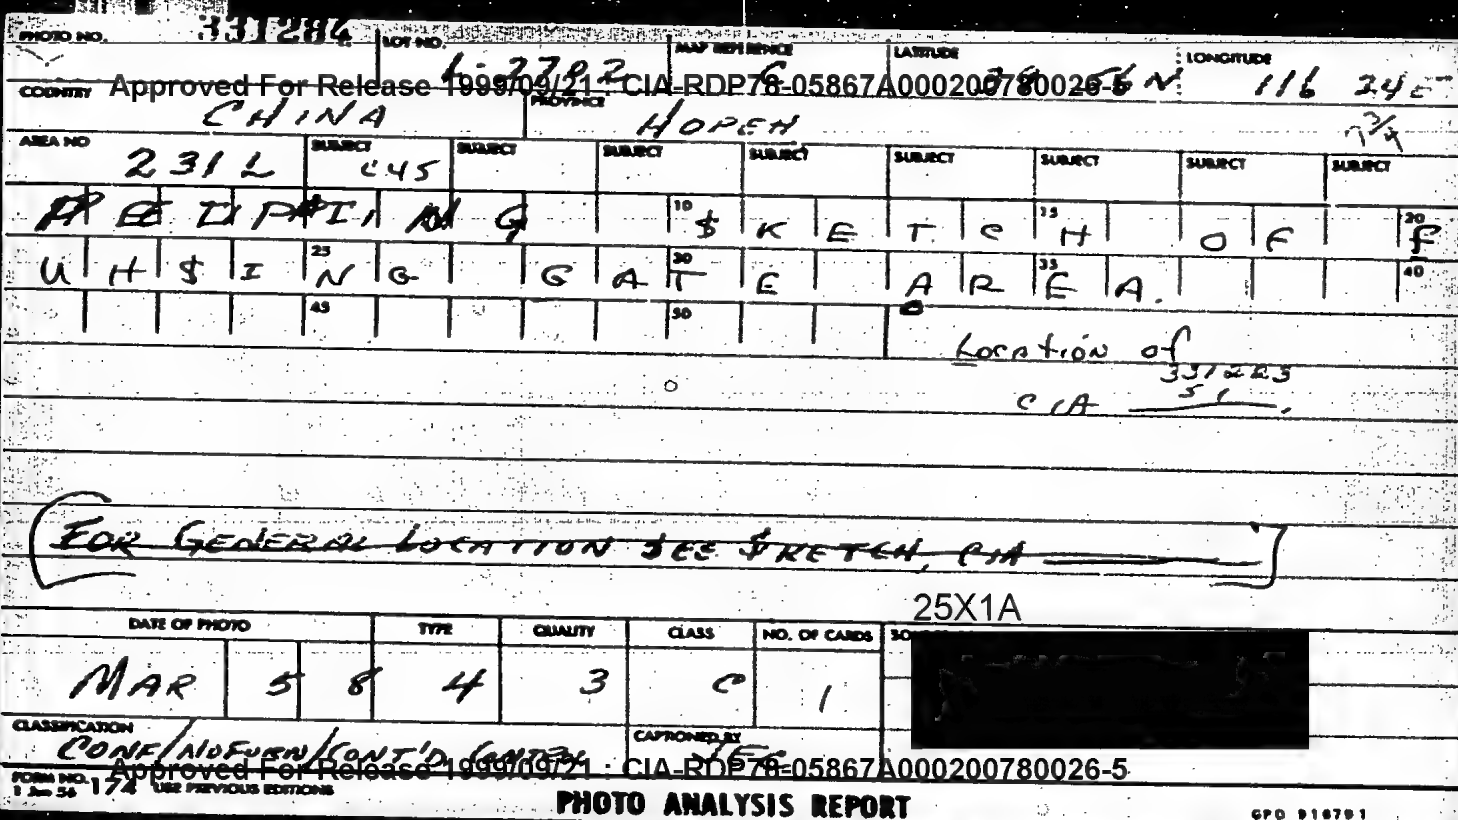 PHOTO NO. 331284 LOT NO. L-2702 MAP REFERENCE C LATITUDE N LONGITUDE 116 24 E
Approved For Release 1999/09/21 : CIA-RDP78-05867A000200780026-5
COUNTRY CHINA PROVINCE HOPEH
AREA NO 231 L SUBJECT C45 SUBJECT SUBJECT SUBJECT SUBJECT SUBJECT SUBJECT SUBJECT
PEIPING 10 SKETCH 15 OF 20 F
UHSING 25 GATE 30 AREA. 35 40
45 50
Location of
331283
CIA 51.
FOR GENERAL LOCATION SEE SKETCH, CIA
25X1A
DATE OF PHOTO TYPE QUALITY CLASS NO. OF CARDS
MAR 58 4 3 C 1
CLASSIFICATION CONF/NOFORN/CONT'D CAPTIONED BY JEG
Approved For Release 1999/09/21 : CIA-RDP78-05867A000200780026-5
FORM NO. 174 USE PREVIOUS EDITIONS
1 Jun 56
PHOTO ANALYSIS REPORT
GPO 918791